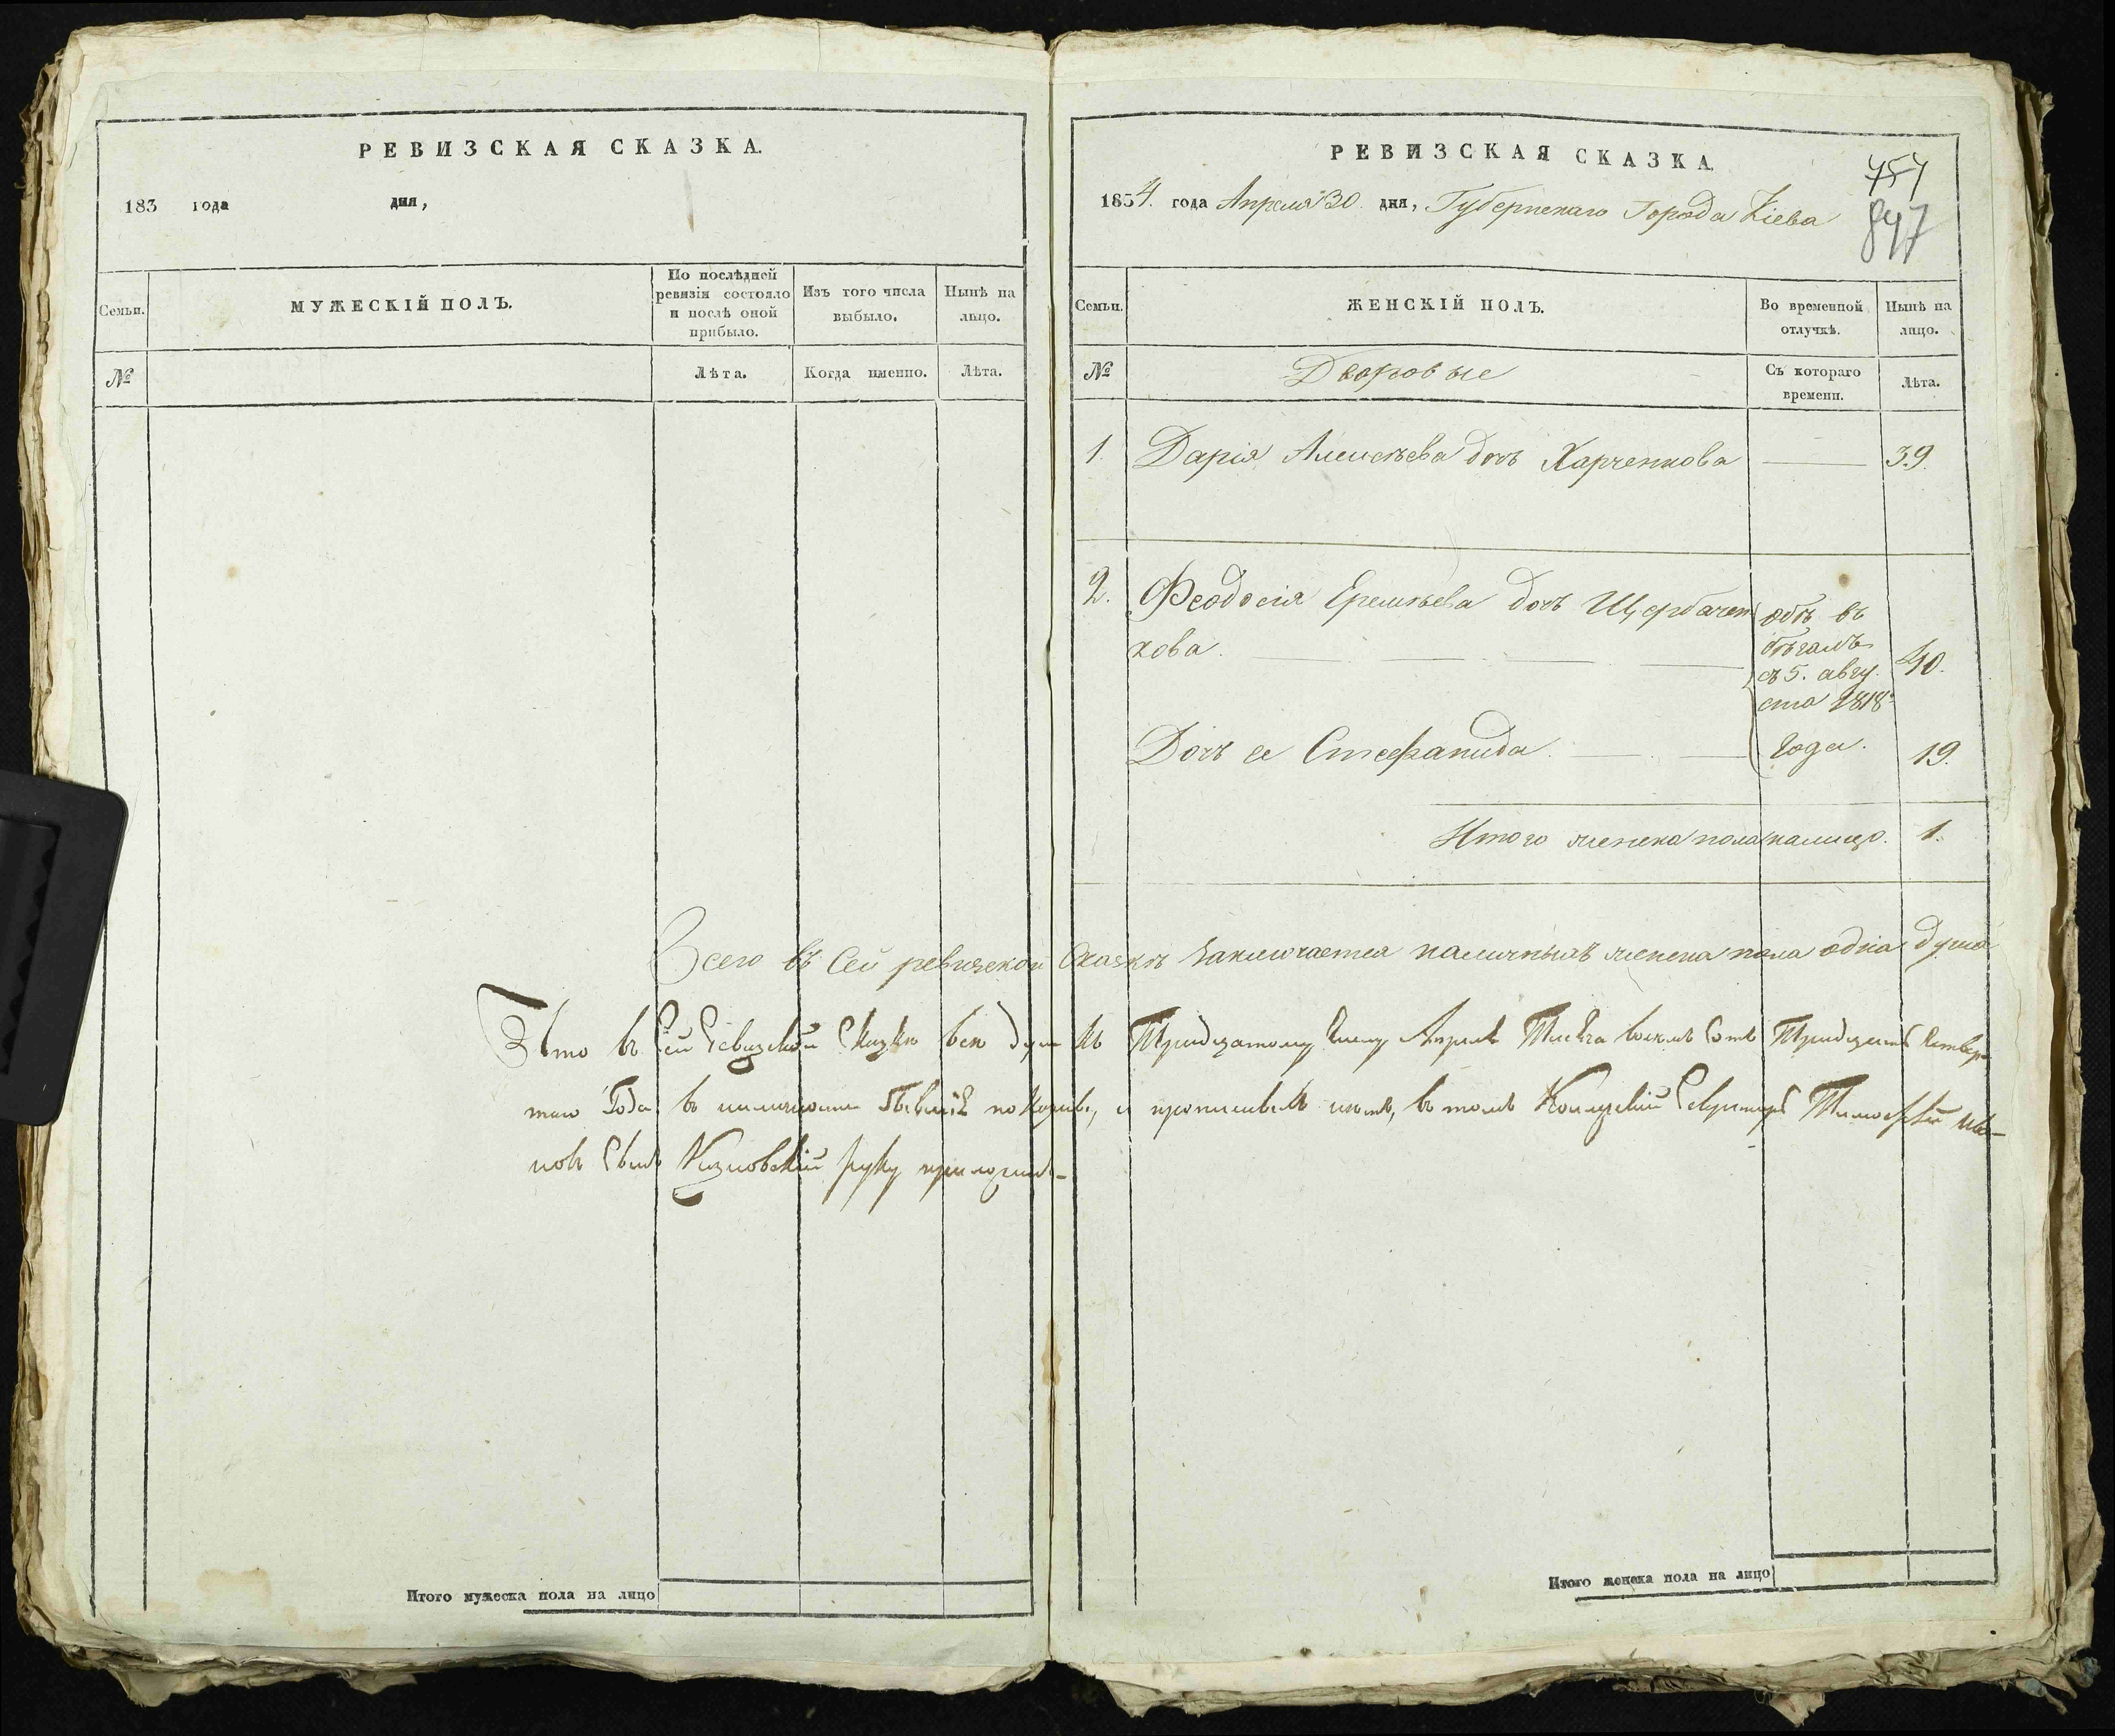 РЕВИЗСКАЯ СКАЗКА.
183 года дня,
Семьи.
МУЖЕСКІЙ ПОЛЪ.
По послѣдней
ревизіи состояло
и послѣ оной
прибыло.
Изъ того числа
выбыло.
Нынѣ на
лицо.
№
Лѣта.
Когда именно.
Лѣта.
РЕВИЗСКАЯ СКАЗКА.
757
847
1834. года Апреля 30. дня, Губернскаго Города Кіева
Семьи.
ЖЕНСКІЙ ПОЛЪ.
Во временной
отлучкѣ.
Нынѣ на
лицо.
№
Дворовые
Съ котораго
времени.
Лѣта.
1. Дарія Алексѣева дочь Харченкова — 39.
2. Феодосія Еремѣева дочь Щербачен
кова.
обѣ въ
бѣгахъ
съ 5. авгу.
ста 1818:
года.
40.
Дочь ее Стефанида. 19.
Итого женска пола налицо. 1.
Всего въ сей ревизской сказкѣ заключается наличныхъ женска пола одна душа
Что въ Сей Ревизской Сказкѣ всѣ души къ Тридцатому Числу Апрѣля Тысяча восемь Сотъ Тридцать Четвер-
таго Года въ наличности бывшіе показаны, и прописныхъ нѣтъ, въ томъ Колежскій Секретарь Тимофѣй Ива-
новъ Сынъ руку приложилъ
Итого мужеска пола на лицо
Итого женска пола на лицо